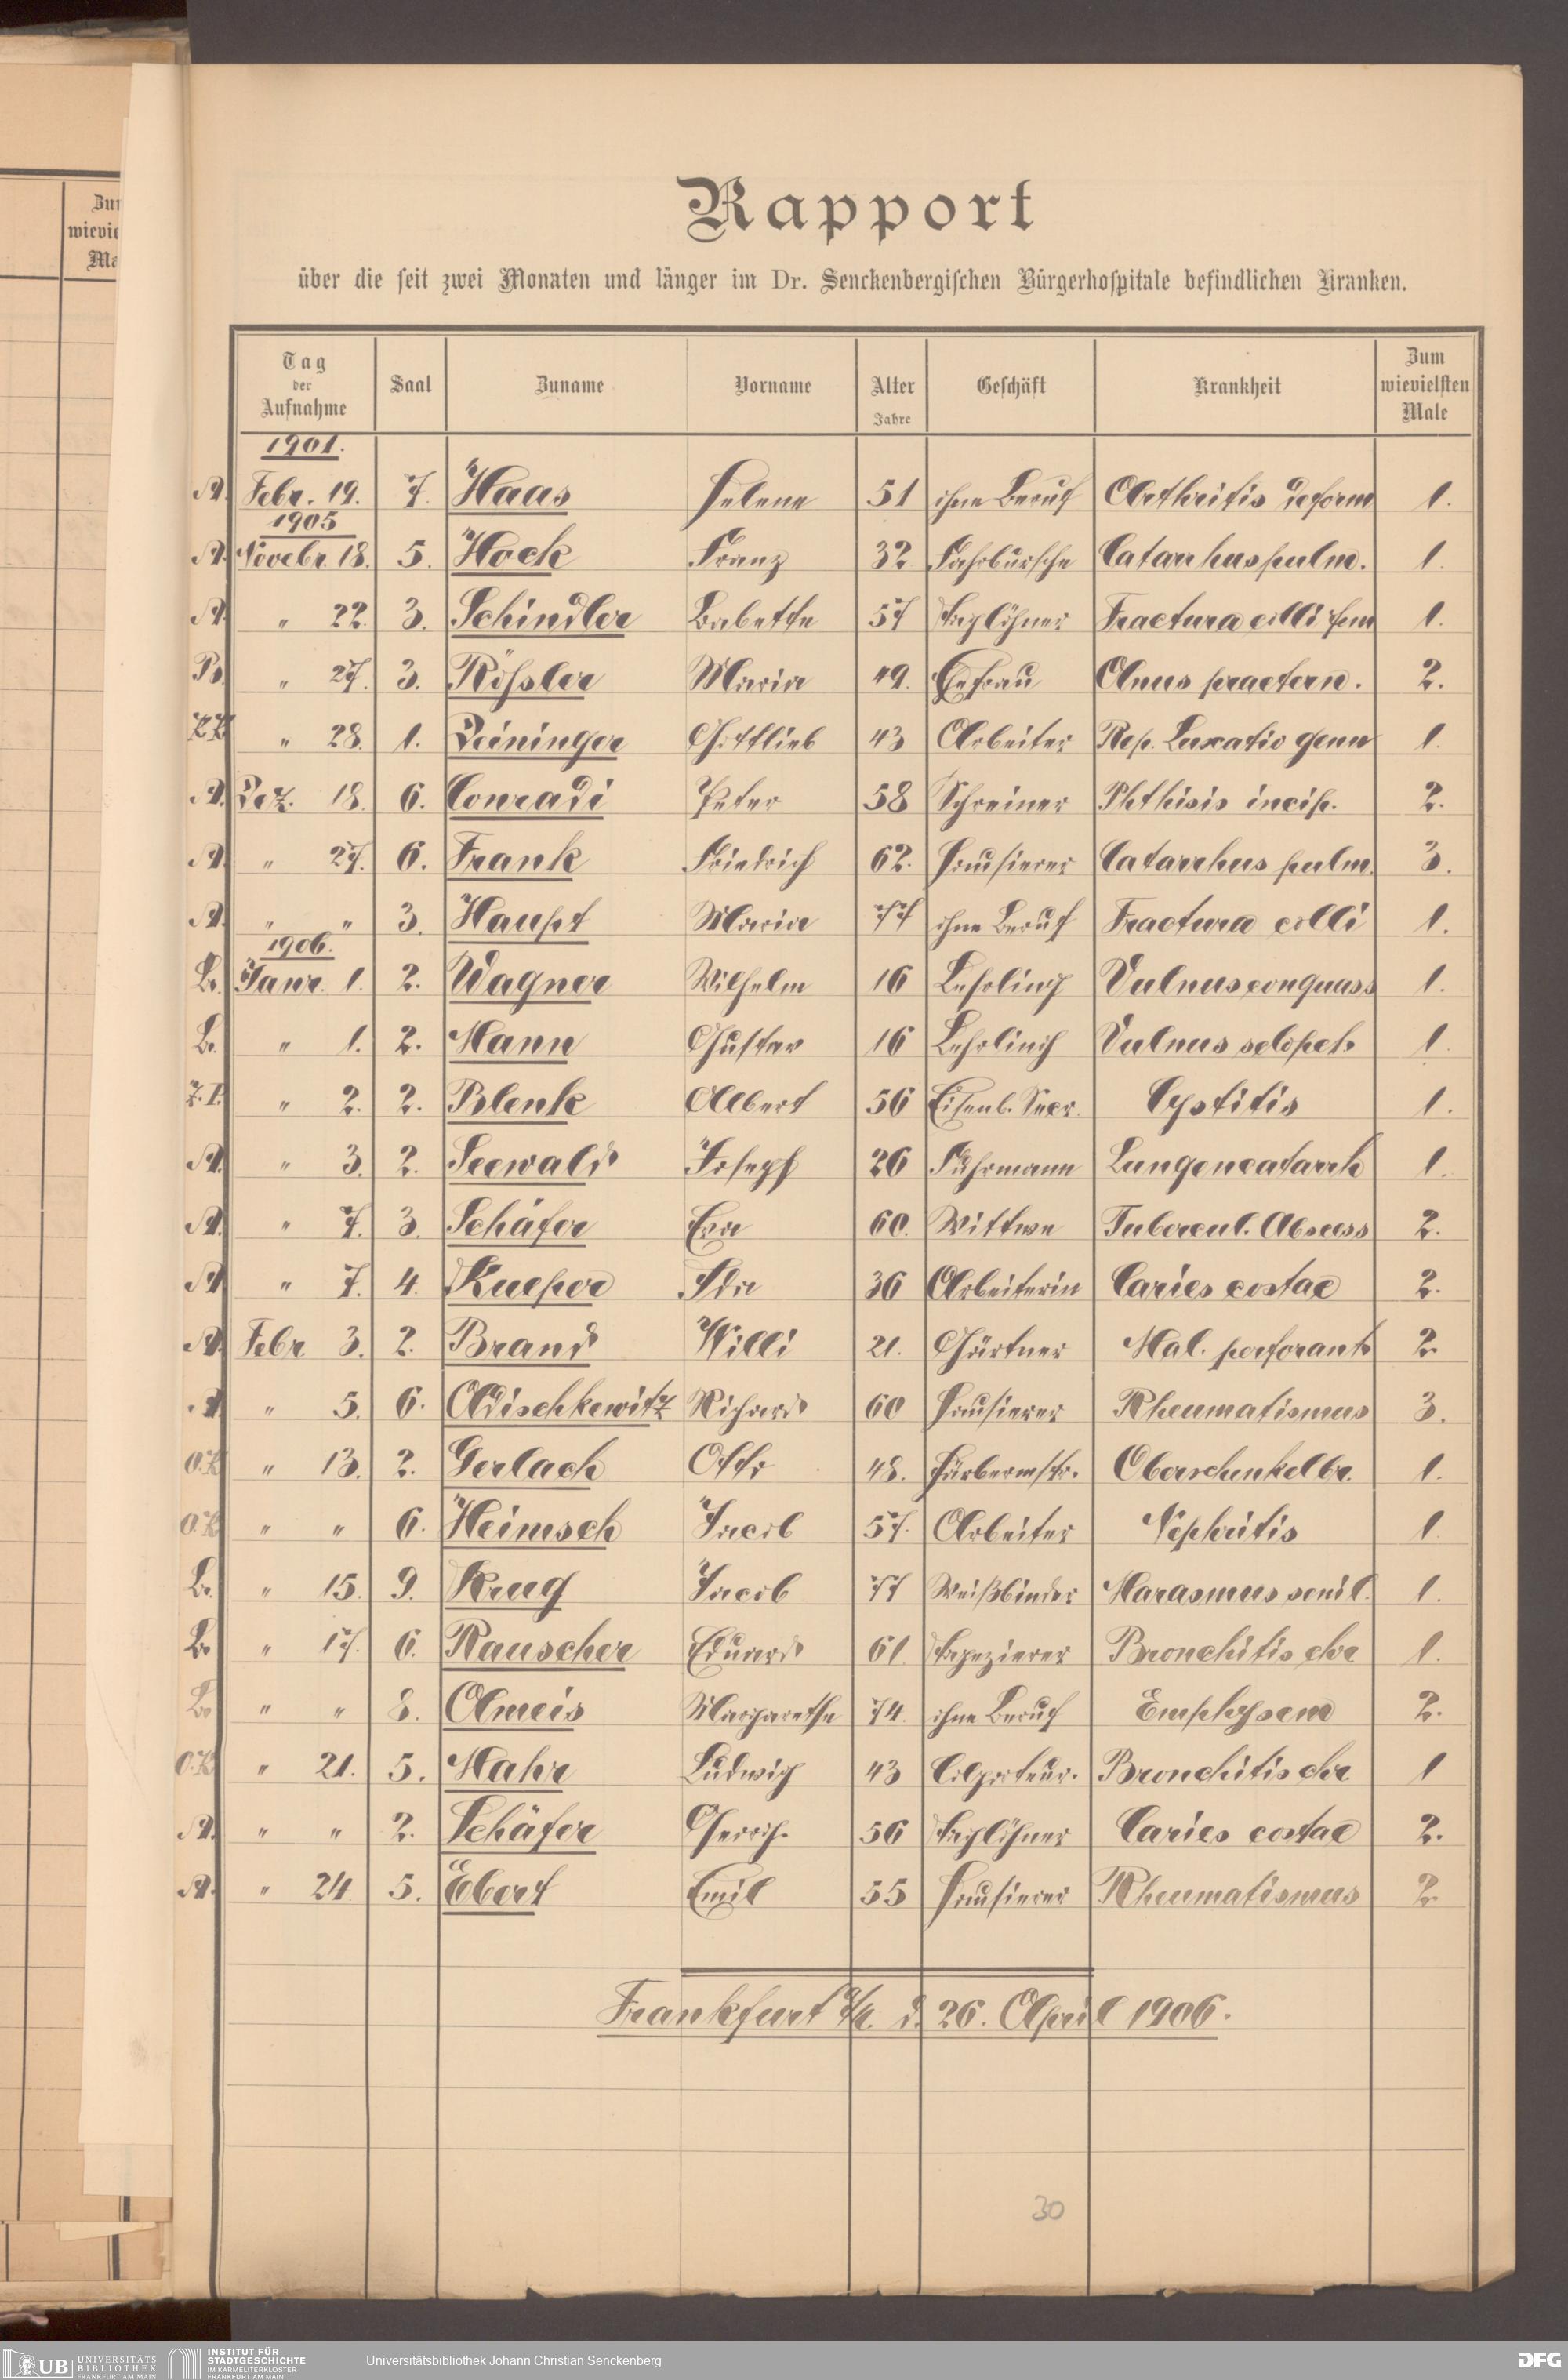 Zum
wieviel
Ma
Rapport
über die seit zwei Monaten und länger im Dr. Senckenbergischen Bürgerhospitale befindlichen Kranken.
Tag der Aufnahme Saal Zuname Vorname Alter Jahre Geschäft Krankheit Zum wievielsten Male
1901.
A. Febr. 19. 7. Haas Helene 51 ohne Beruf Arthritis deform 1.
1905
A. Novebr. 18. 5. Hock Franz 32 Fahrbursche Catarrhus pulm. 1.
A. " 22. 3. Schindler Babette 57 Taglöhner Fractura colli fem 1.
B. " 27. 3. Rößler Maria 49. Ehefrau Anus praetern. 2.
" 28. 1. Deininger Gottlieb 43 Arbeiter Rep. Luxatio genu 1.
A. Dez. 18. 6. Conradi Peter 58 Schreiner Phthisis incip. 2.
A. " 27. 6. Frank Friedrich 62. Hausierer Catarrhus pulm. 3.
A. " " 3. Haupt Maria 77 ohne Beruf Fractura colli 1.
1906.
Br. Janr. 1. 2. Wagner Wilhelm 16 Lehrling Vulnus conquass 1.
Br. " 1. 2. Mann Gustav 16 Lehrling Vulnus sclopet. 1.
" 2. 2. Blenk Albert 56 Eisenb. Secr. Cystitis 1.
A. " 3. 2. Seewald Joseph 26 Fuhrmann Lungencatarrh 1.
A. " 7. 3. Schäfer Eva 60. Wittwe Tubercul. Abscess 2.
A. " 7. 4. Kueper Ida 36 Arbeiterin Caries costae 2.
A. Febr 3. 2. Brand Willi 21. Gärtner Mal. perforants 2.
A. " 5. 6. Adischkewitz Richard 60 Hausierer Rheumatismus 3.
O.K " 13. 2. Gerlach Otto 48. Färbermstr. Oberschenkelbr. 1.
O.K " " 6. Heimsch Jacob 57. Arbeiter Nephritis 1.
Br. " 15. 9. Krug Jacob 77 Weißbinder Marasmus senil. 1.
Br. " 17. 6. Rauscher Eduard 61 Tapezierer Bronchitis chr 1.
Br. " " 8. Olmeis Margarethe 74. ohne Beruf Emphysem 2.
O.K " 21. 5. Mahr Ludwig 43 Colporteur. Bronchitis chr 1
A. " " 2. Schäfer Georg. 56 Taglöhner Caries costae 2.
A. " 24 5. Ebert Emil 55 Hausierer Rheumatismus 2
Frankfurt a/M. d. 26. April 1906.
30
UB UNIVERSITÄTS BIBLIOTHEK FRANKFURT AM MAIN
INSTITUT FÜR STADTGESCHICHTE IM KARMELITERKLOSTER FRANKFURT AM MAIN
Universitätsbibliothek Johann Christian Senckenberg
DFG